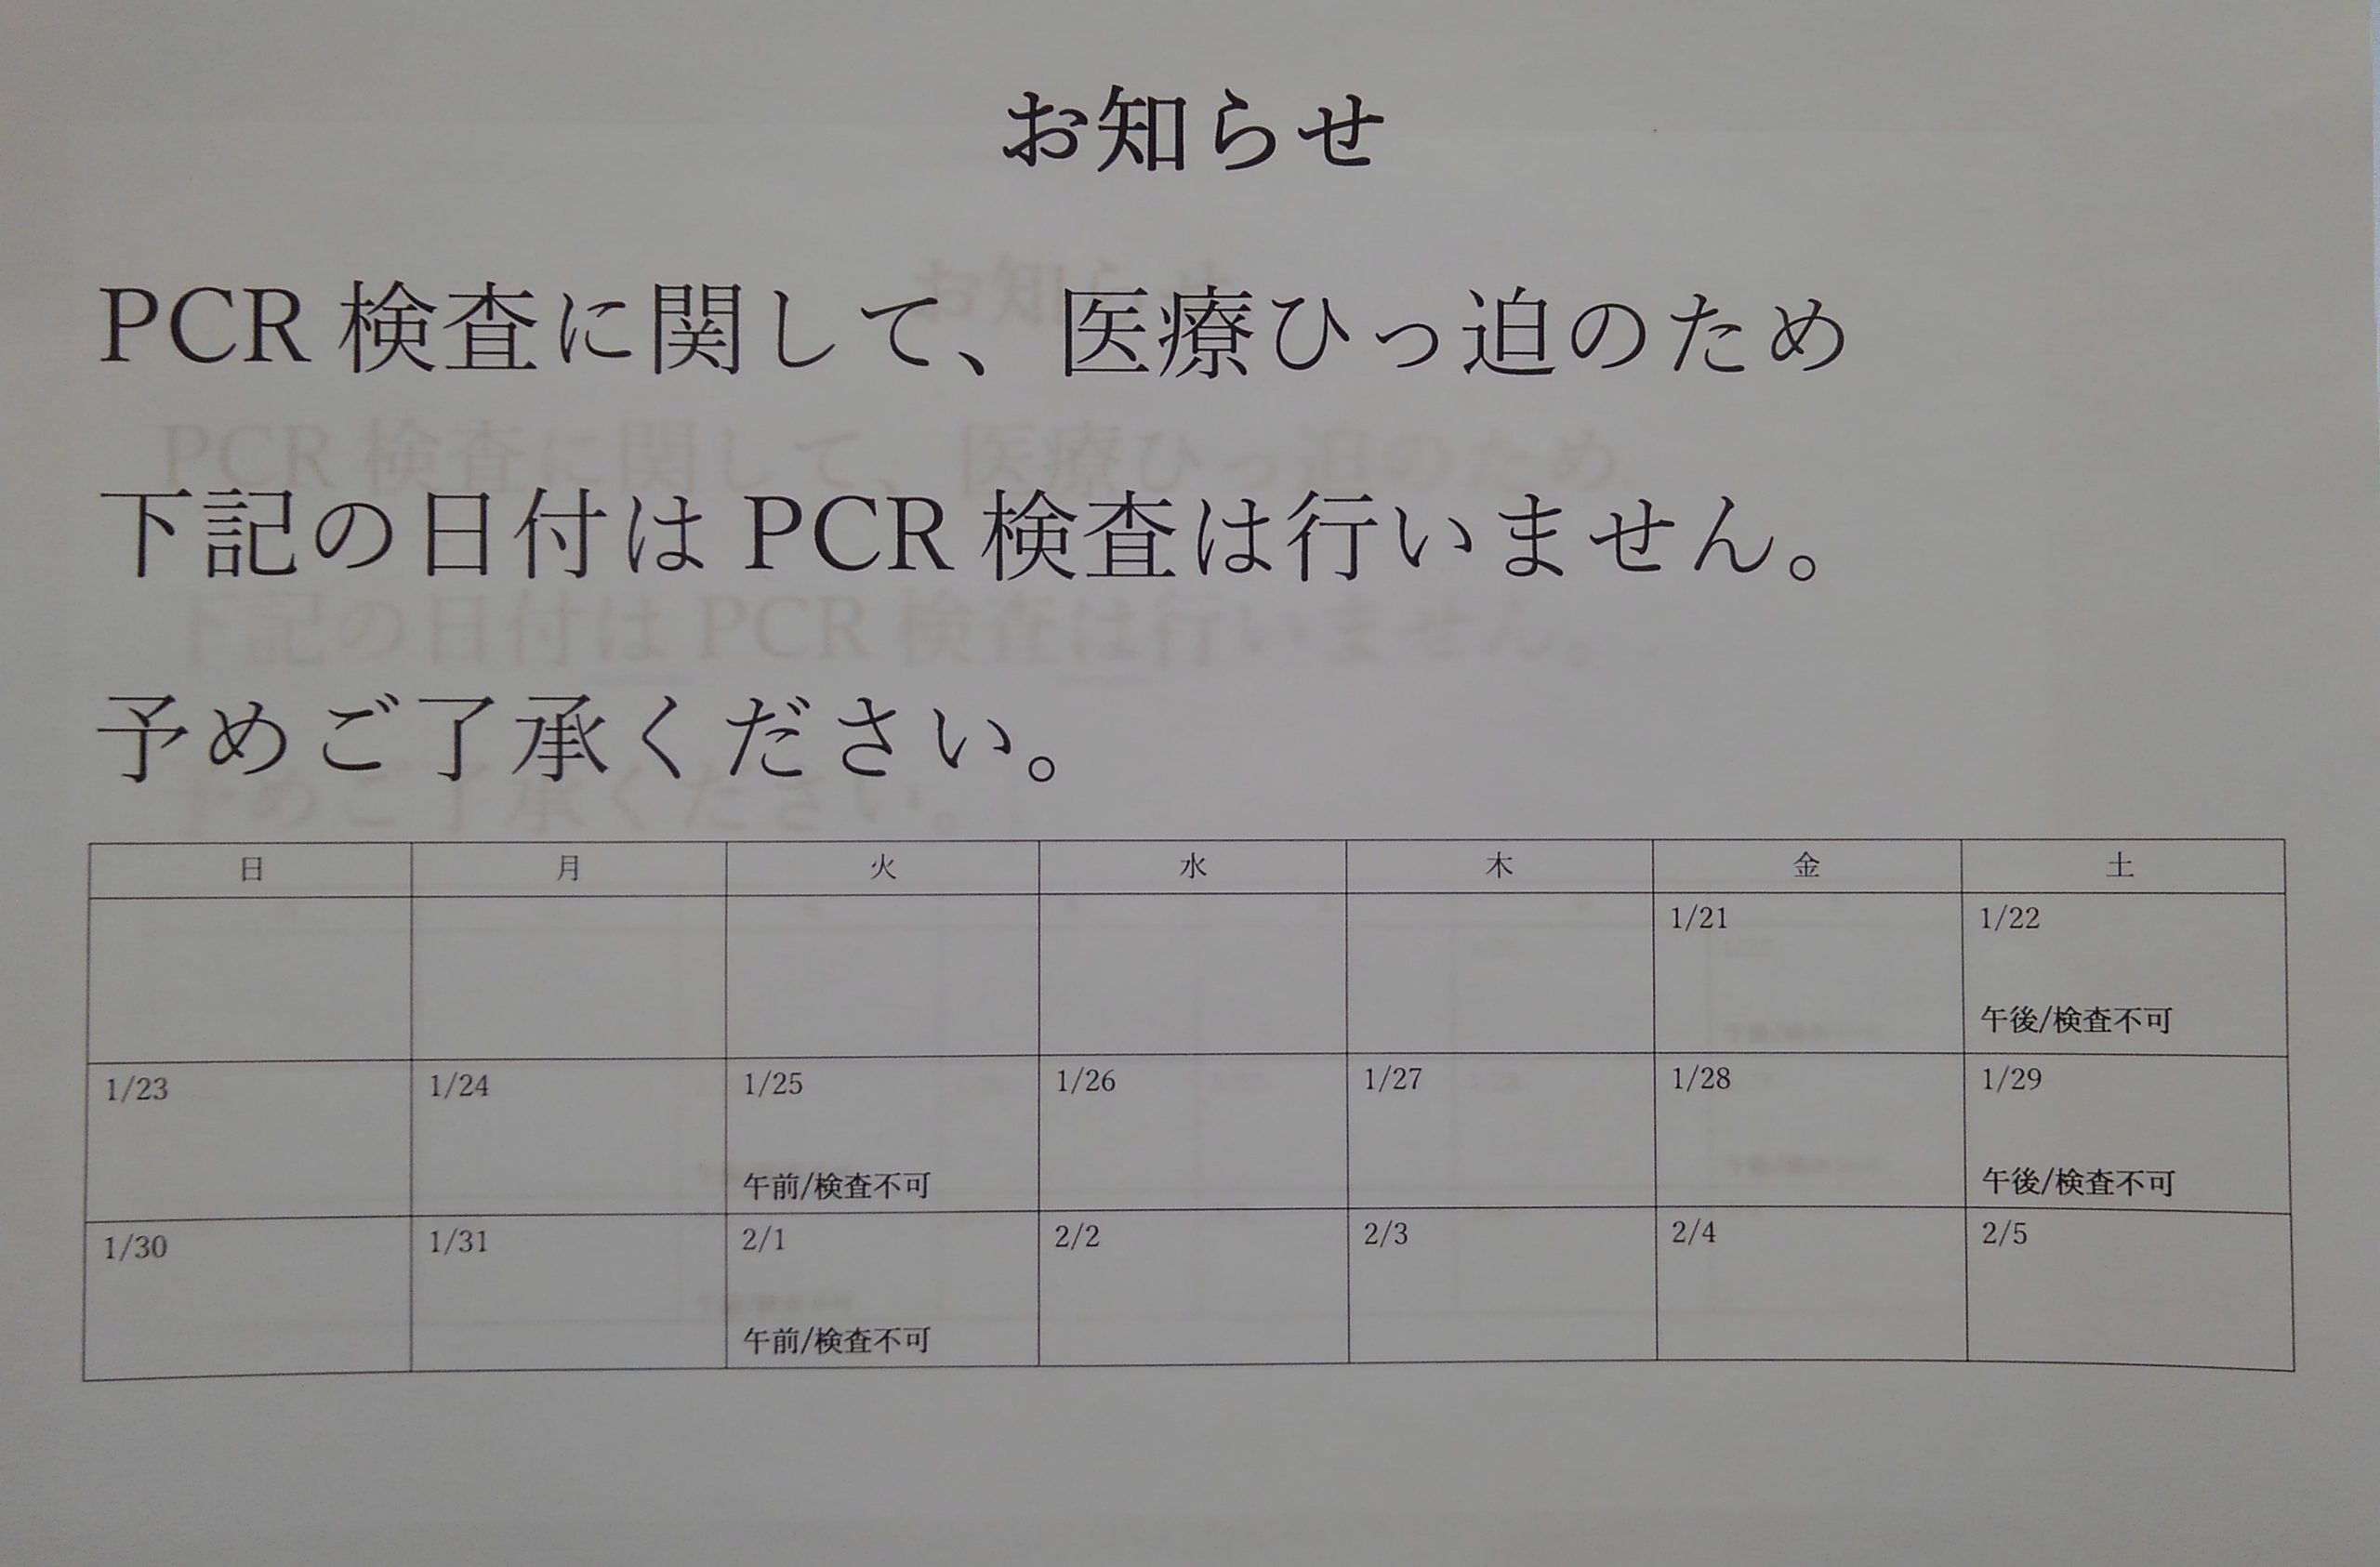 お知らせ
PCR 検査に関して、医療ひっ迫のため
下記の日付は PCR 検査は行いません。
予めご了承ください。
日 月 火 水 木 金 土
1/21 1/22
午後/検査不可
1/23 1/24 1/25 1/26 1/27 1/28 1/29
午前/検査不可 午後/検査不可
1/30 1/31 2/1 2/2 2/3 2/4 2/5
午前/検査不可